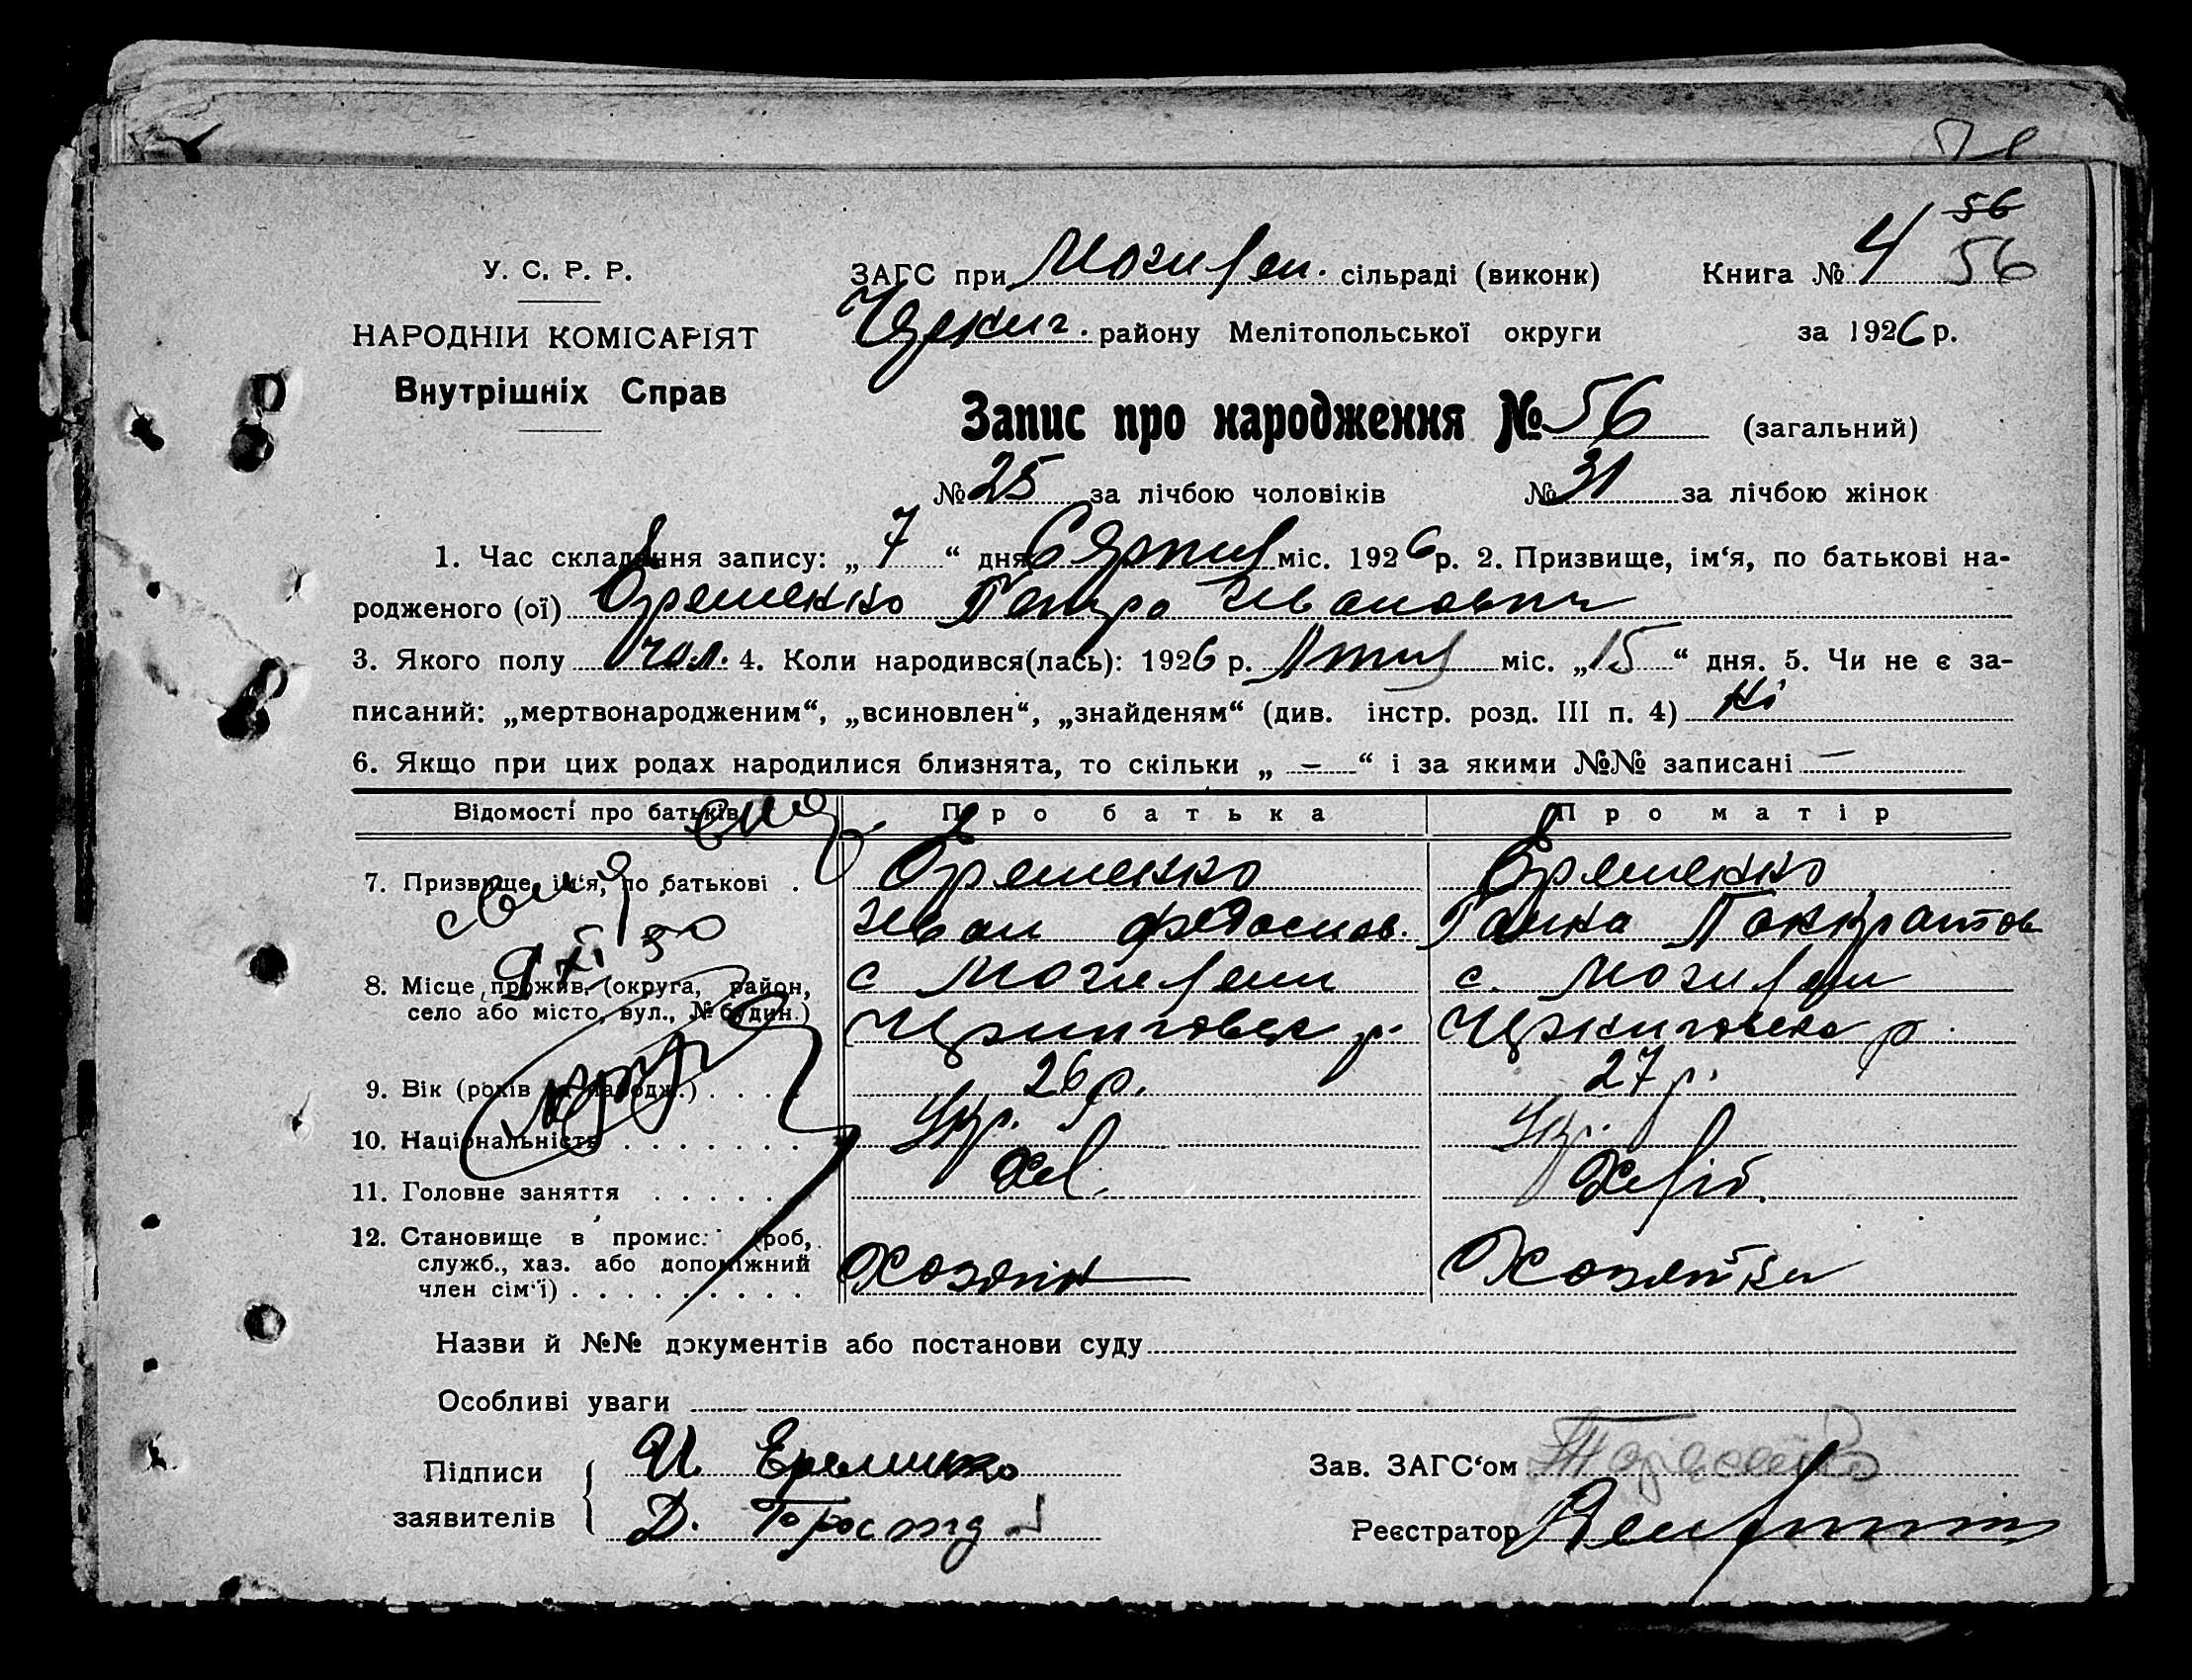 56
У. С. Р. Р.
ЗАГС при Могилян. сільраді (виконк) Книга № 4 56
НАРОДНІЙ КОМІСАРІЯТ
району Мелітопольської округи за 1926 р.
Внутрішніх Справ
Запис про народження № 56 (загальний)
№ 25 за лічбою чоловіків № 31 за лічбою жінок
1. Час складання запису: „ 7 “ дня Серпня міс. 1926 р. 2. Призвище, ім‘я, по батькові на-
родженого (ої) Єременко Петро Иванович
3. Якого полу чол. 4. Коли народився(лась): 1926 р. міс. „15“ дня. 5. Чи не є за-
писаний: „мертвонародженим“, „всиновлен“, „знайденям“ (див. інстр. розд. III п. 4) Ні
6. Якщо при цих родах народилися близнята, то скільки „ – “ і за якими №№ записані –
Відомості про батьків Про батька Про матір
7. Призвище, ім‘я, по батькові . Єременко Єременко
Иван Федосиов. Ганна Панкратов
8. Місце прожив. (округа, район, с Могиляни с. Могиляни
село або місто, вул., № будин.) р. р.
9. Вік (років народж.) . . . . 26 р. 27 р.
10. Національність . . . . . . . . Укр. Укр.
11. Головне заняття . . . . . . Хл. Хліб.
12. Становище в промис. (роб,
служб., хаз. або допоміжний Хозяїн Хозяйка
член сім‘ї) . . . . . . . . .
Назви й №№ документів або постанови суду
Особливі уваги
Підписи И. Еременко Зав. ЗАГС‘ом
заявителів Д. Реєстратор